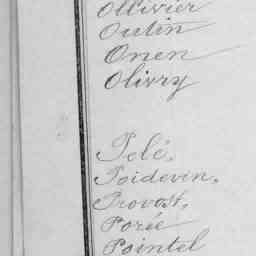 Ollivier
Outin
Onen
Olivry
Pelé,
Poidevin,
Provost,
Porée
Pointel